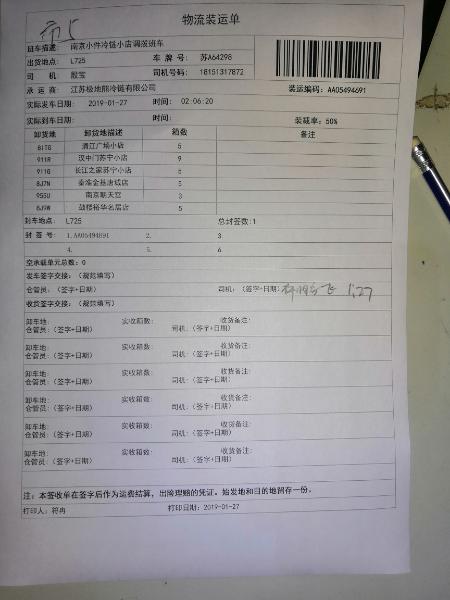 市5
物流装运单
班车描述: 南京小件冷链小店调拨班车
出货地点: L725 车牌号: 苏A64298
司机: 殷宝 司机号码: 18151317872
承运商: 江苏极地熊冷链有限公司 装运编码: AA05494691
实际发车日期: 2019-01-27 时间: 02:06:20
实际到车日期: 时间: 装载率: 50%
卸货地 卸货地描述 箱数 备注
81TG 清江广场小店 5
911R 汉中门苏宁小店 9
911G 长江之家苏宁小店 5
8J7N 秦淮金基唐城店 5
9S5U 南京朝天宫 3
8J9W 鼓楼裕华名居店 5
到车地点: L725 总封签数:1
封签号: 1.AA05494691 2. 3.
4. 5. 6.
空承载单元总数: 0
发车签字交接: (规范填写)
仓管员: (签字+日期) 司机: (签字+日期) 1.27
收货签字交接: (规范填写)
卸车地: 实收箱数: 收货备注:
仓管员: (签字+日期) 司机: (签字+日期)
卸车地: 实收箱数: 收货备注:
仓管员: (签字+日期) 司机: (签字+日期)
卸车地: 实收箱数: 收货备注:
仓管员: (签字+日期) 司机: (签字+日期)
卸车地: 实收箱数: 收货备注:
仓管员: (签字+日期) 司机: (签字+日期)
卸车地: 实收箱数: 收货备注:
仓管员: (签字+日期) 司机: (签字+日期)
卸车地: 实收箱数: 收货备注:
仓管员: (签字+日期) 司机: (签字+日期)
注: 本签收单在签字后作为运费结算, 出险理赔的凭证。始发地和目的地留存一份。
打印人: 蒋冉 打印日期: 2019-01-27